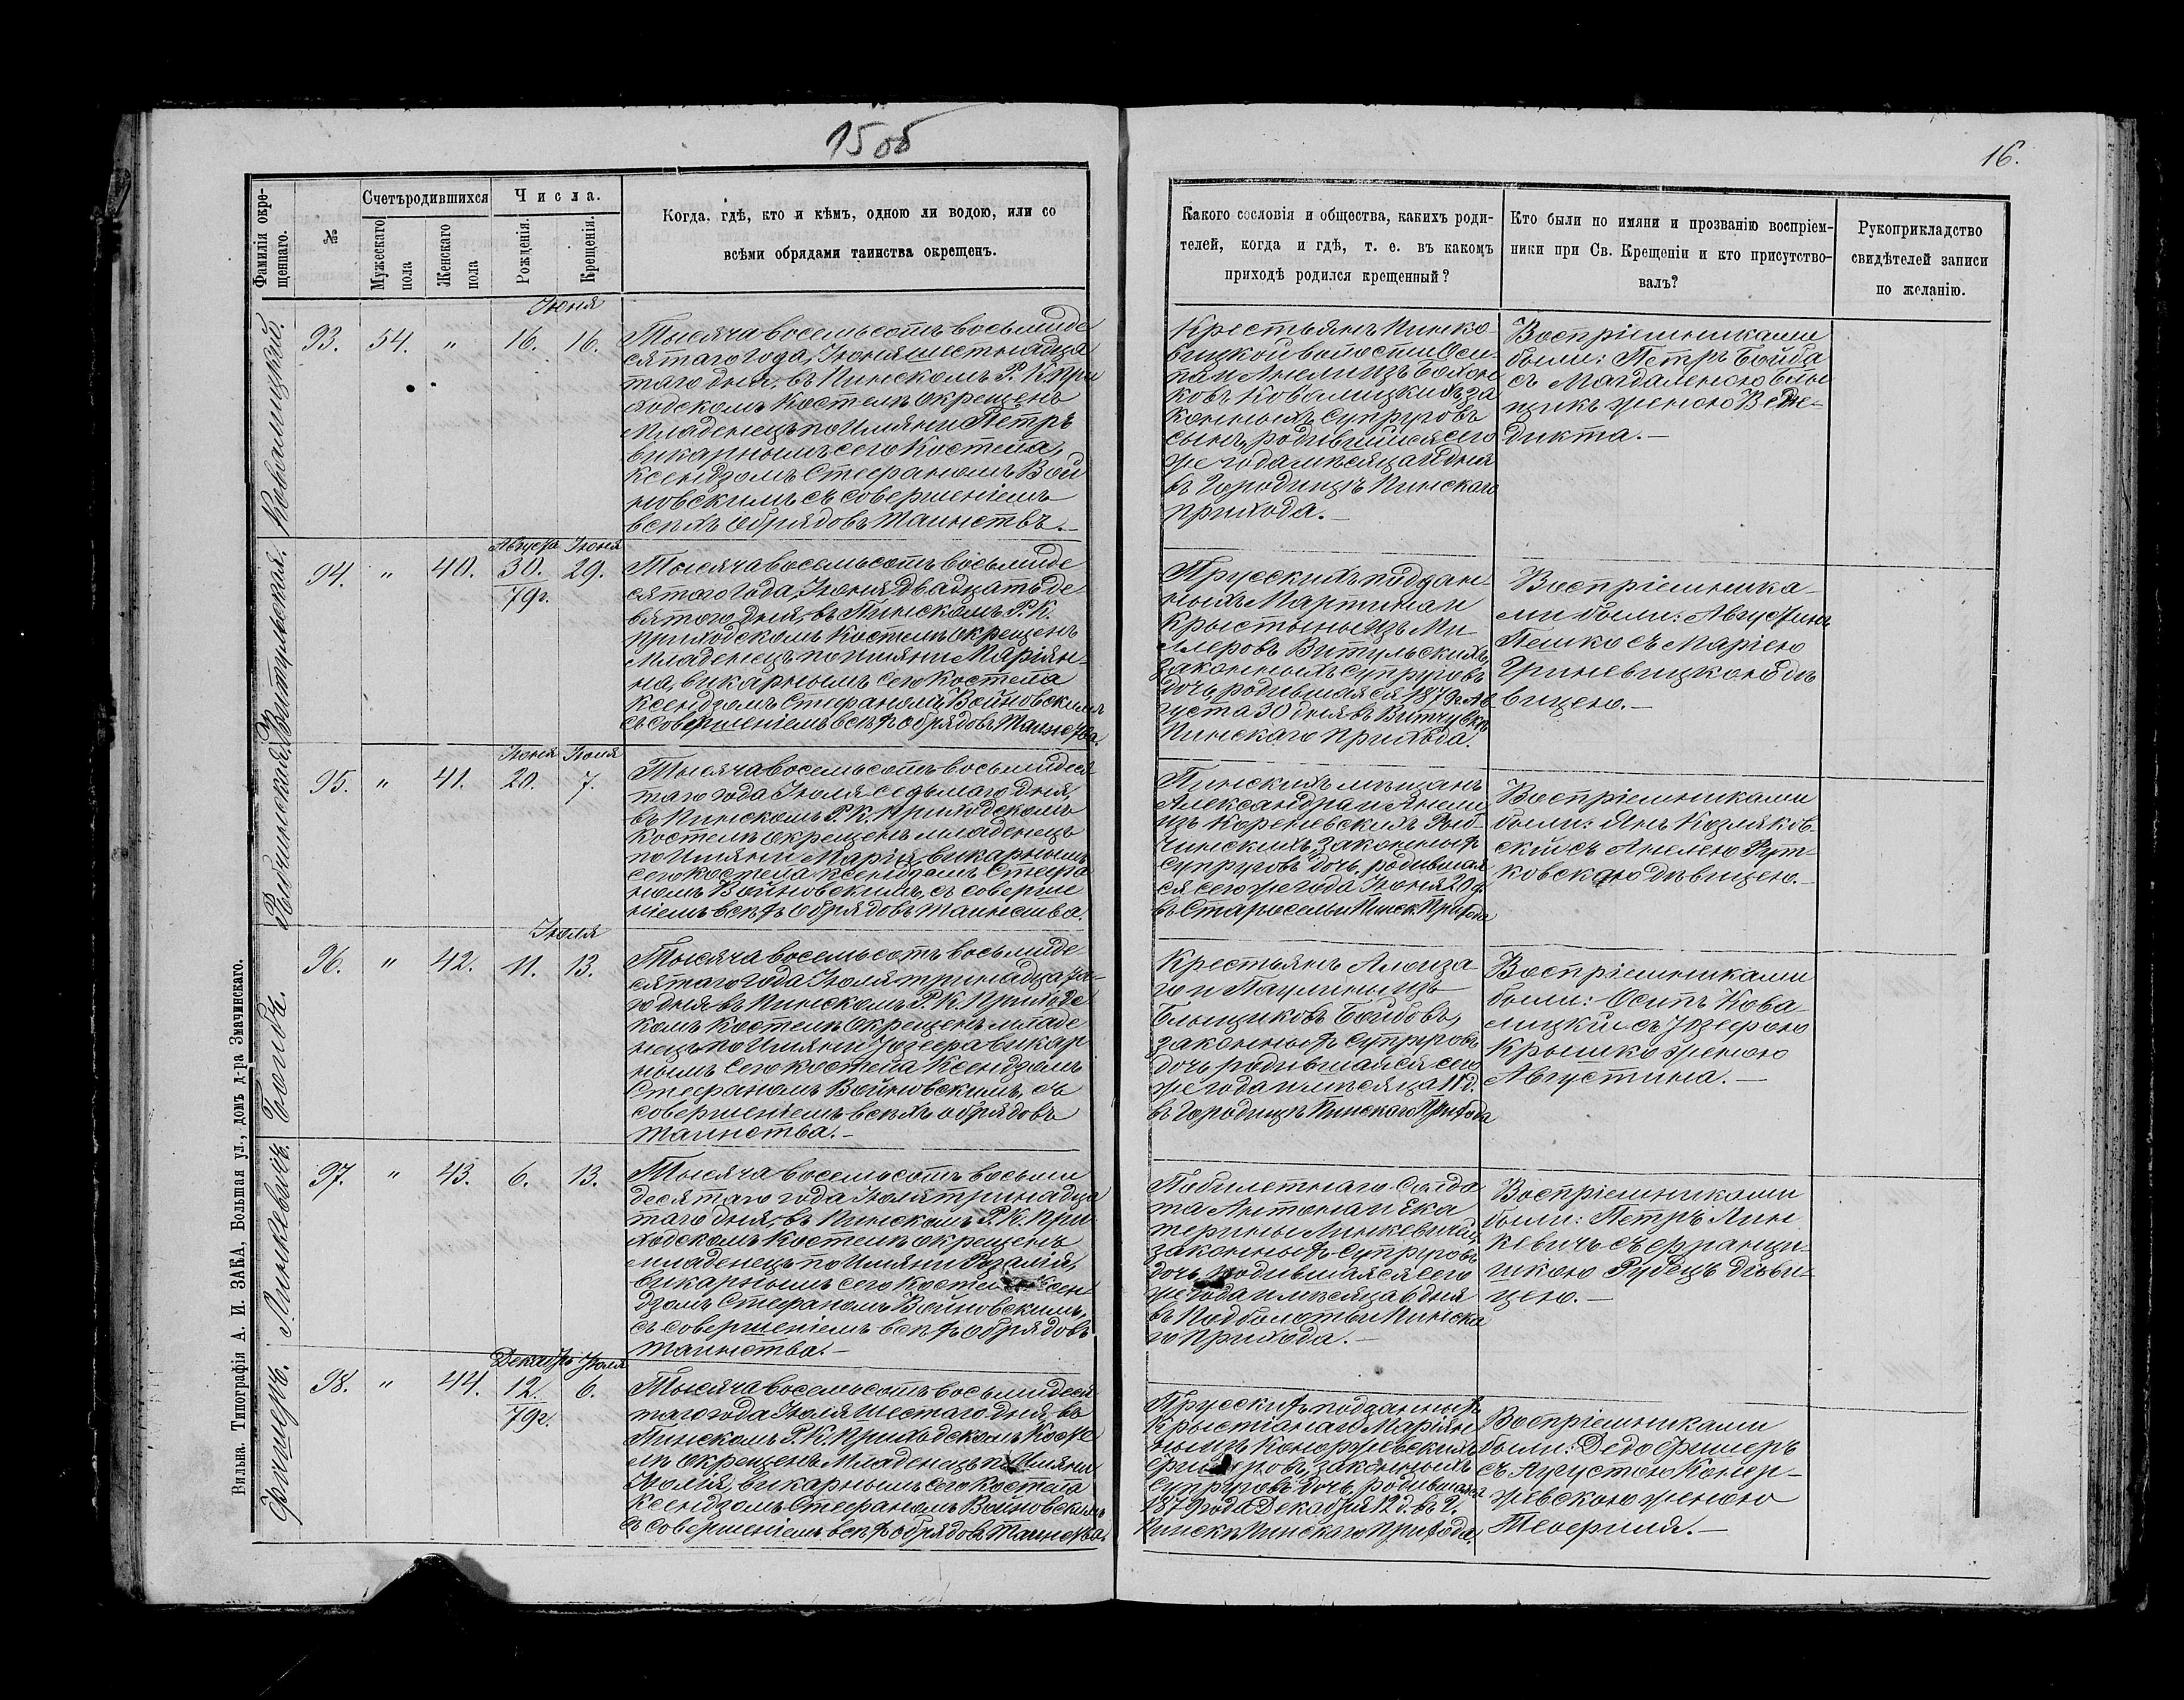 15 об
16.
Фамилія окре-
щеннаго.
№
Счетъ родившихся
Мужескаго
пола
Женскаго
пола
Числа.
Рожденія.
Крещенія.
Когда, гдѣ, кто и кѣмъ, одною ли водою, или со
всѣми обрядами таинства окрещенъ.
Какого сословія и общества, какихъ роди-
телей, когда и гдѣ, т. е. въ какомъ
приходѣ родился крещенный?
Кто были по имяни и прозванію воспріем-
ники при Св. Крещеніи и кто присутство-
валъ?
Рукоприкладство
свидѣтелей записи
по желанію.
Ковалицкій.
93. 54. " Іюня 16. 16.
Тысяча восемьсотъ восьмиде
сятаго года, Іюня шестнадца
таго дня, въ Пинскомъ Р. К. При
ходскомъ Костелѣ окрещенъ
Младенецъ по Имяни Петръ
викарнымъ сего Костела,
Ксендзомъ Стефаномъ Вой
новскимъ съ совершеніемъ
всѣхъ обрядовъ Таинствъ.—
Крестьянъ Пинко-
вицкой волости Оси-
па и Анели изъ
ковъ Ковалицкихъ за
конныхъ Супруговъ
сынъ, родившійся сего
же года мѣсяца и дня
въ Городищѣ Пинскаго
прихода.—
Воспріемниками
были: Петръ Бойда
съ Магдаленою Блы
щикъ женою Бене-
дикта.—
Витульская.
94. " 40. Августа 30. 79г. Іюня 29.
Тысяча восемьсотъ восьмиде
сятаго года, Іюня двадцать де
вятаго дня, въ Пинскомъ Р. К.
Приходскомъ Костелѣ окрещенъ
Младенецъ по Имяни Маріян-
на, викарнымъ сего Костела
Ксендзомъ Стефаномъ Войновскимъ
съ совершеніемъ всѣхъ обрядовъ Таинства.
Прусскихъ поддан
ныхъ Мартина и
Крыстыны изъ Ми
леровъ Витульскихъ,
законныхъ Супруговъ
дочь, родившаяся 1879 г. Ав
густа 30 дня въ
Пинскаго Прихода.
Воспріемника-
ми были: Августинъ
Пешко съ Маріею
Гриневицкою дѣ
вицею.—
Рыбчинская.
95. " 41. Іюня 20. Іюля 7.
Тысяча восемьсотъ восьмидеся
таго года Іюля седьмаго дня,
въ Пинскомъ Р. К. Приходскомъ
Костелѣ окрещенъ младенецъ
по Имяни Марія, викарнымъ
сего костела ксендзомъ Стефа
номъ Войновскимъ, съ соверше
ніемъ всѣхъ обрядовъ Таинства.
Пинскихъ мѣщанъ
Александра и Анели
изъ Кореневскихъ Рыб-
чинскихъ, законныхъ
Супруговъ дочь, родившая
ся сего же года Іюня 20 д.
въ Старосельи Пинск. Прихода
Воспріемниками
были: Янъ Козляков-
скій съ Анелею Рут-
ковскою дѣвицею.—
Бойда.
96. " 42. Іюля 11. 13.
Тысяча восемьсотъ восьмиде
сятаго года Іюля тринадцата-
го дня въ Пинскомъ Р. К. Приходс
комъ Костелѣ окрещенъ младе
нецъ по Имяни Юзефа викар
нымъ сего костела Ксендзомъ
Стефаномъ Войновскимъ, съ
совершеніемъ всѣхъ обрядовъ
Таинства.—
Крестьянъ Алоиза-
го и Паулины изъ
Блыщиковъ Бойдовъ,
законныхъ Супруговъ
дочь, родившаяся сего
же года и мѣсяца 11 д.
въ Городищѣ Пинскаго Прихода
Воспріемниками
были: Осипъ Кова-
лицкій съ Юзефою
Крышко женою
Августина.—
Линкевичъ.
97. " 43. 6. 13.
Тысяча восемьсотъ восьми
десятаго года Іюля тринадца
таго дня, въ Пинскомъ Р. К. При
ходскомъ Костелѣ окрещенъ
младенецъ по Имяни Розалія,
викарнымъ сего Костела Ксен
дзомъ Стефаномъ Войновскимъ,
съ совершеніемъ всѣхъ обрядовъ
таинства.—
Побилетнаго Солда
та Антона и Ека
терины Линкевичей,
законныхъ Супруговъ
дочь, родившаяся сего
же года и мѣсяца 6 дня
въ Подболотьи Пинска
го Прихода.—
Воспріемниками
были: Петръ Лин
кевичъ съ Франци-
шкою Рудецъ дѣви-
цею.—
Фишеръ.
98. " 44. Декабрь 12. 79г. Іюля 6.
Тысяча восемьсотъ восьмидеся
таго года Іюля шестаго дня, въ
Пинскомъ Р. К. Приходскомъ Косте
лѣ окрещенъ Младенецъ по Имяни
Юлія, викарнымъ сего Костела
Ксендзомъ Стефаномъ Войновскимъ
съ совершеніемъ всѣхъ обрядовъ Таинства.
Прусскихъ подданныхъ
Крыстіяна и Маріян
ны изъ
Фишеровъ, законныхъ
Супруговъ дочь, родившаяся
1879 года Декабря 12 д. въ г.
Пинскѣ Пинскаго Прихода.
Воспріемниками
были: Фишеръ
съ Августою
жевскою женою
Теофиля.—
Вильна. Типографія А. И. ЗАКА, Большая ул., домъ д-ра Змачинскаго.